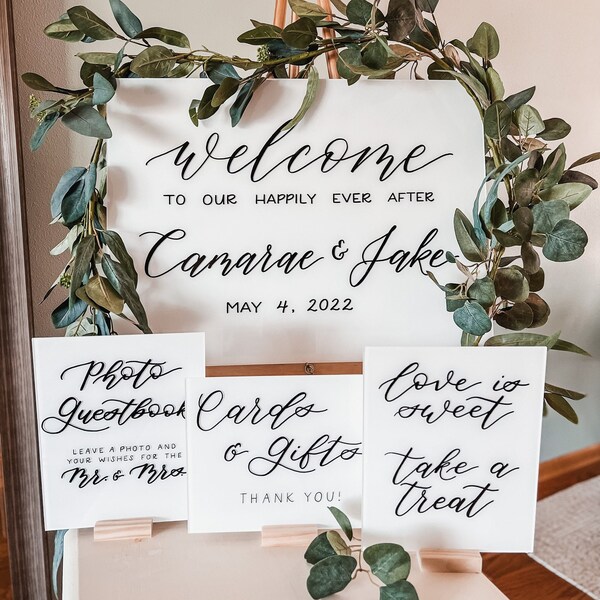 welcome
TO OUR HAPPILY EVER AFTER
Camarae & Jake
MAY 4, 2022
Photo
Guestbook
LEAVE A PHOTO AND
YOUR WISHES FOR THE
Mr. & Mrs
Cards
& Gifts
THANK YOU!
love is
sweet
take a
treat